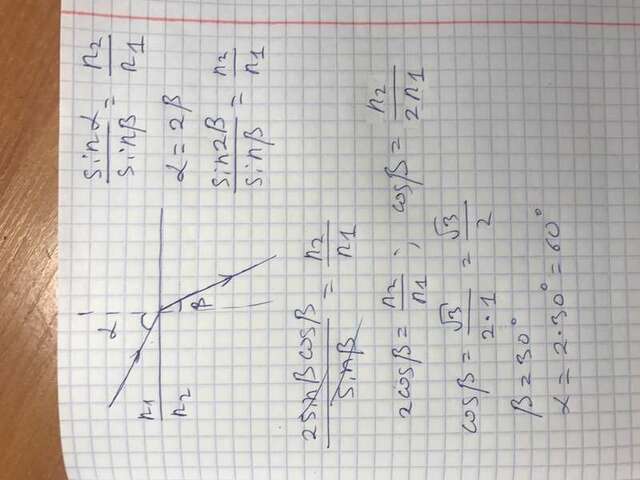 α
β
n1
n2
sinα/sinβ = n2/n1
α = 2β
sin2β/sinβ = n2/n1
2sinβ cosβ/sinβ = n2/n1
2cosβ = n2/n1; cosβ = n2/2n1
cosβ = √3/2·1 = √3/2
β = 30°
α = 2·30° = 60°